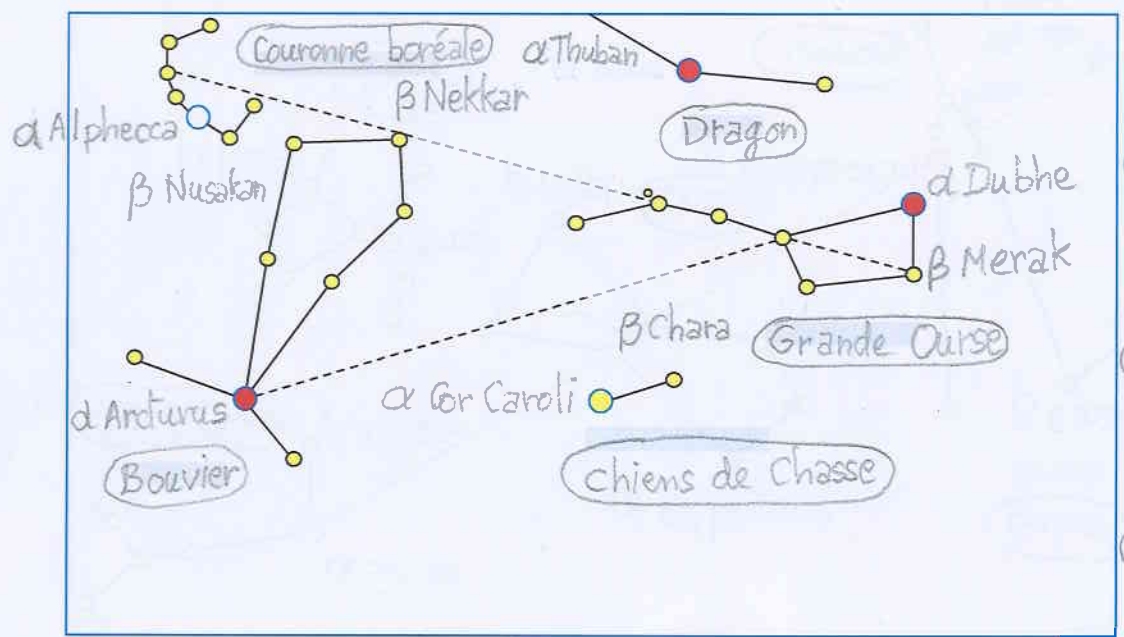 Couronne boréale
α Thuban
β Nekkar
α Alphecca
Dragon
β Nusakan
α Dubhe
β Merak
β Chara
Grande Ourse
α Cor Caroli
α Arcturus
Bouvier
Chiens de Chasse